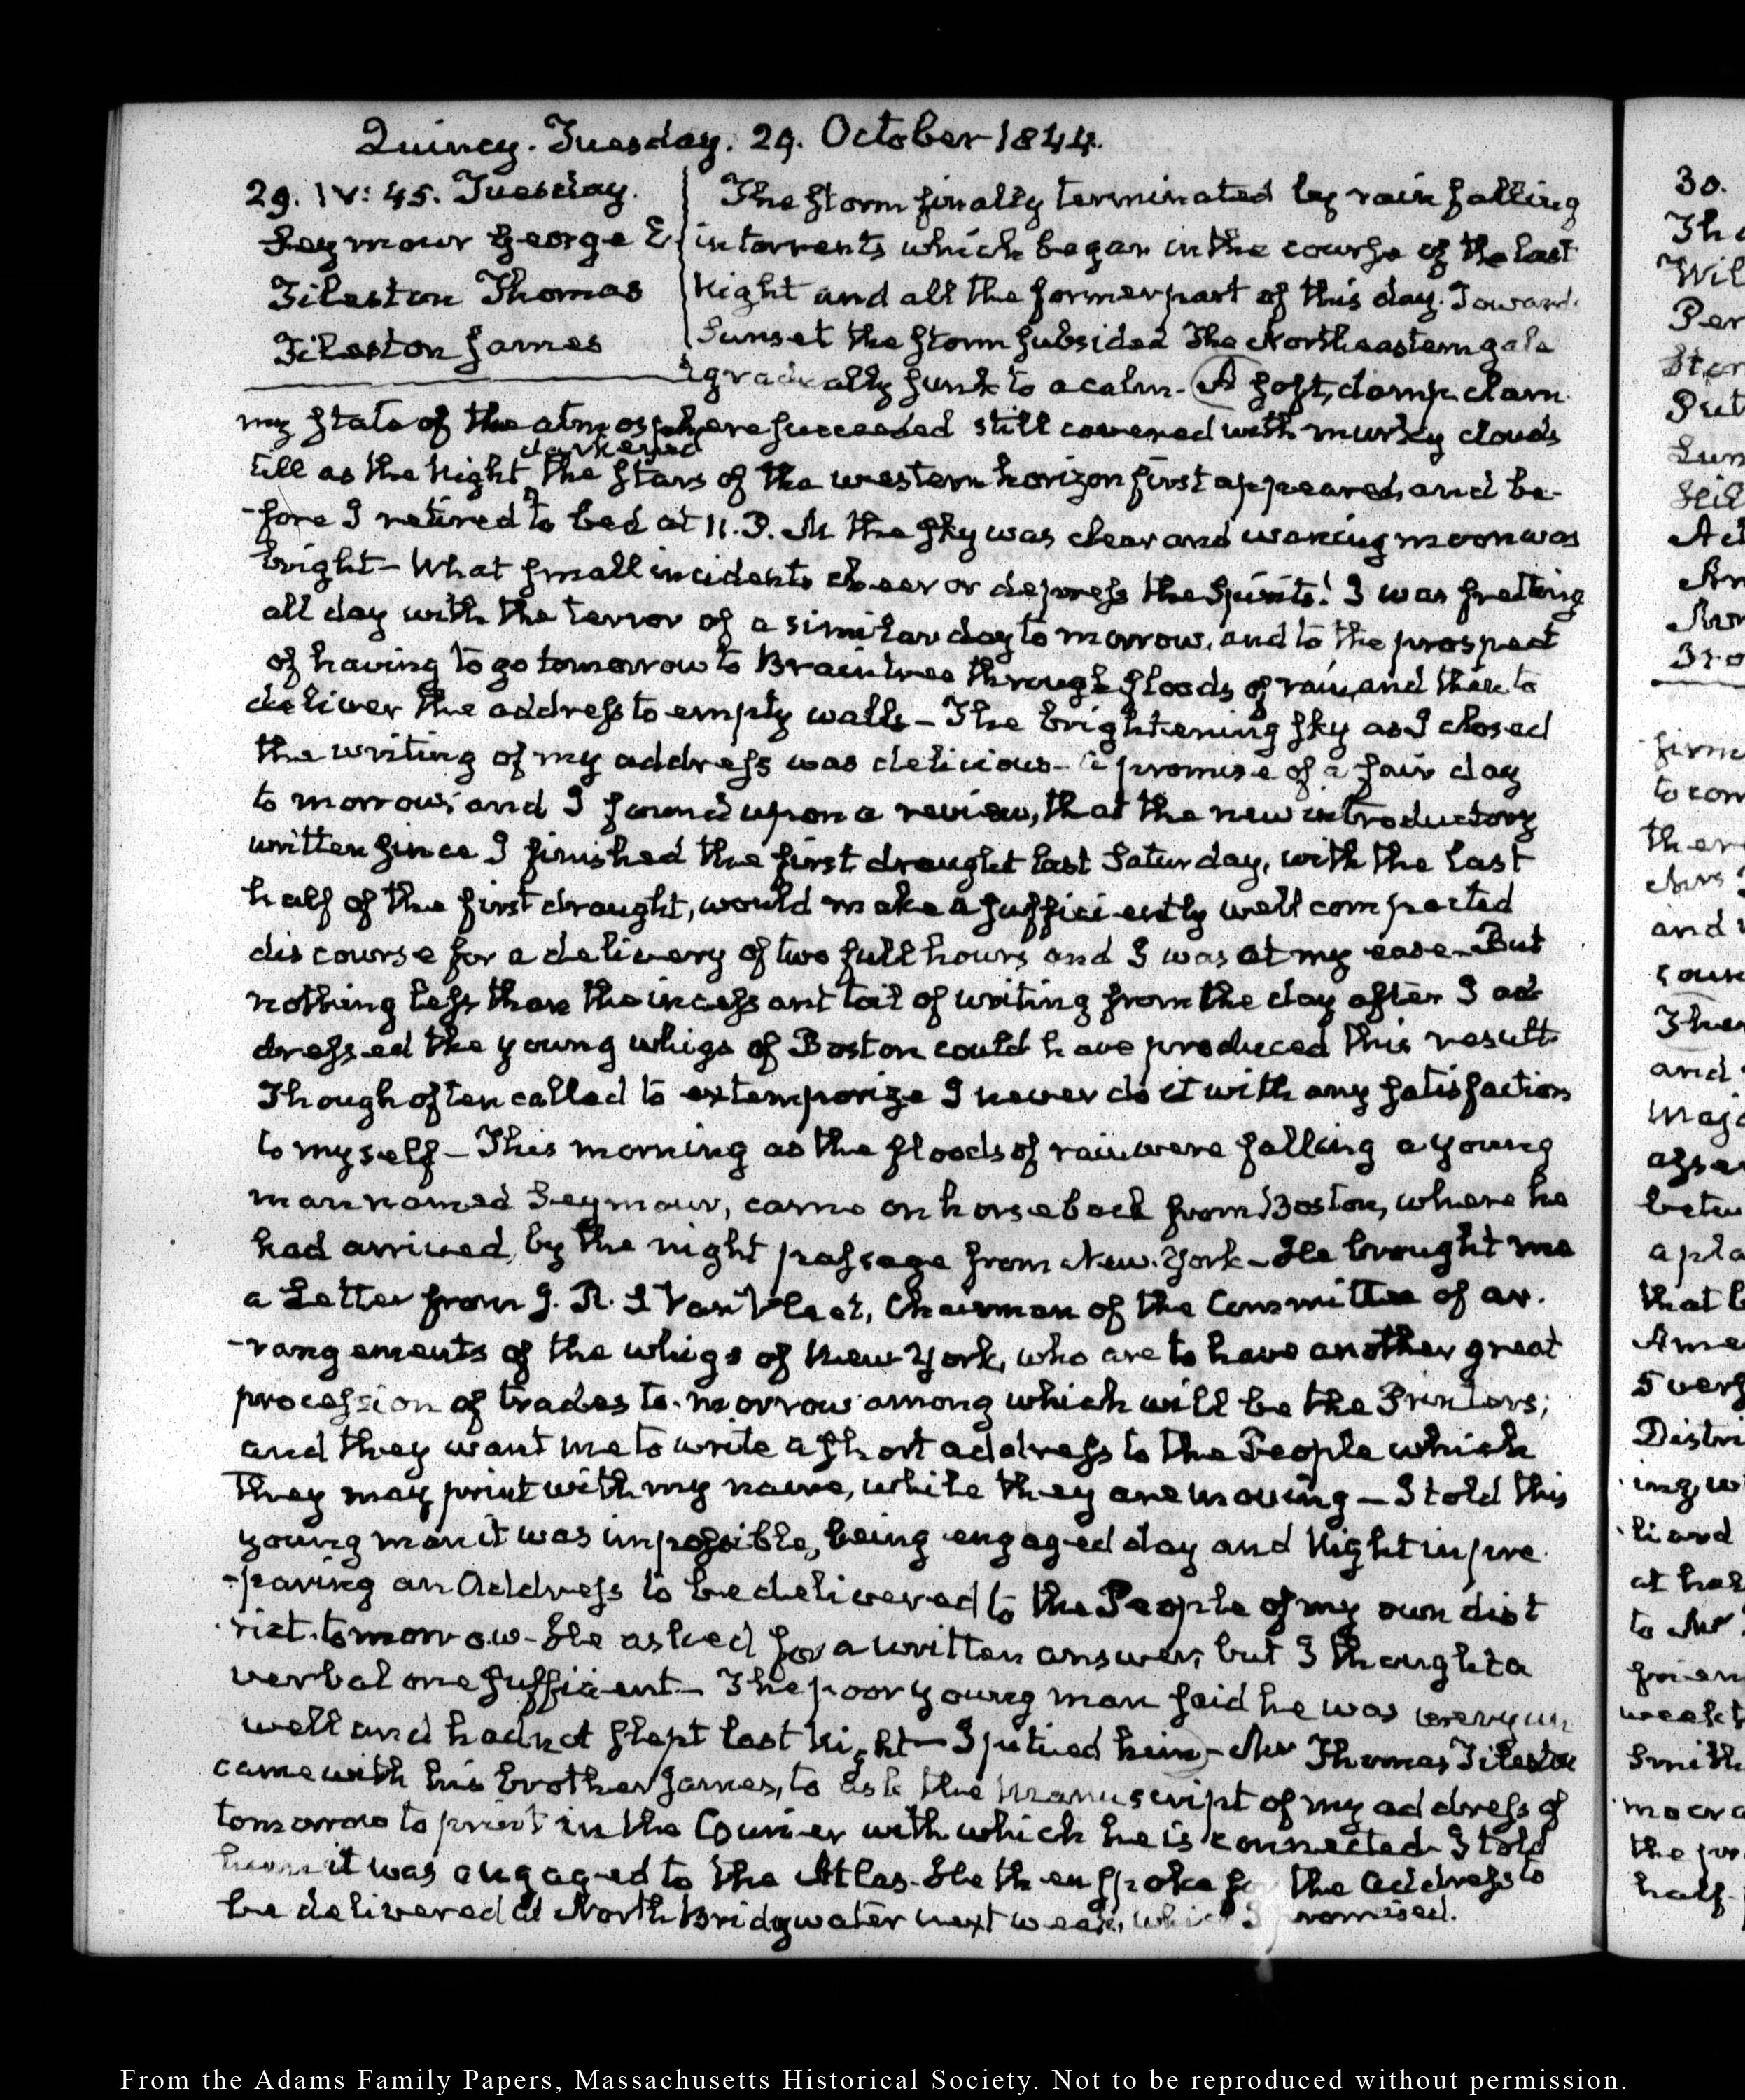 Quincy. Tuesday. 29. October 1844.
29. IV: 45. Tuesday.
Seymour George E
Tileston Thomas
Tileston James
The storm finally terminated by rain falling
in torrents which began in the course of the last
Night and all the former part of this day. Toward
Sunset the storm subsided The Northeastern gale
gradually sunk to a calm. A soft, damp, clam
my state of the atmosphere succeeded still covered with murky clouds
till as the Night darkened the stars of the western horizon first appeared, and be-
-fore I retired to bed at 11. P. M the sky was clear and waning moon was
bright— What small incidents cheer or depress the Spirits! I was fretting
all day with the terror of a similar day to morrow, and to the prospect
of having to go tomorrow to Braintree through floods of rain, and then to
deliver the address to empty walls— The brightening sky as I closed
the writing of my address was delicious— a promise of a fair day
to morrow; and I found upon a review, that the new introductory
written since I finished the first draught last Saturday, with the last
half of the first draught, would make a sufficiently well compacted
discourse for a delivery of two full hours and I was at my ease— But
nothing less than the incessant toil of writing from the day after I ad
dressed the young whigs of Boston could have produced this result
Though often called to extemporize I never do it with any satisfaction
to myself— This morning as the floods of rain were falling a young
man named Seymour, came on horseback from Boston, where he
had arrived, by the night passage from New-York— He brought me
a Letter from J. R. S Van Vleet, Chairman of the Committee of ar.
-rangements of the whigs of New-York, who are to have another great
procession of trades to-morrow among which will be the Printers;
and they want me to write a short address to the People which
they may print with my name, while they are moving— I told this
young man it was impossible, being engaged day and Night in pre
-paring an Address to be delivered to the People of my own dist
rict tomorrow— He asked for a written answer, but I thought a
verbal one sufficient— The poor young man said he was very un
well and had not slept last Night— I pitied him— Mr Thomas Tileston
came with his brother James, to ask the Manuscript of my address of
tomorrow to print in the Courier with which he is connected— I told
him it was engaged to the Atlas— He then spoke for the address to
be delivered at North Bridgwater next week, which I promised.
30.
From the Adams Family Papers, Massachusetts Historical Society. Not to be reproduced without permission.